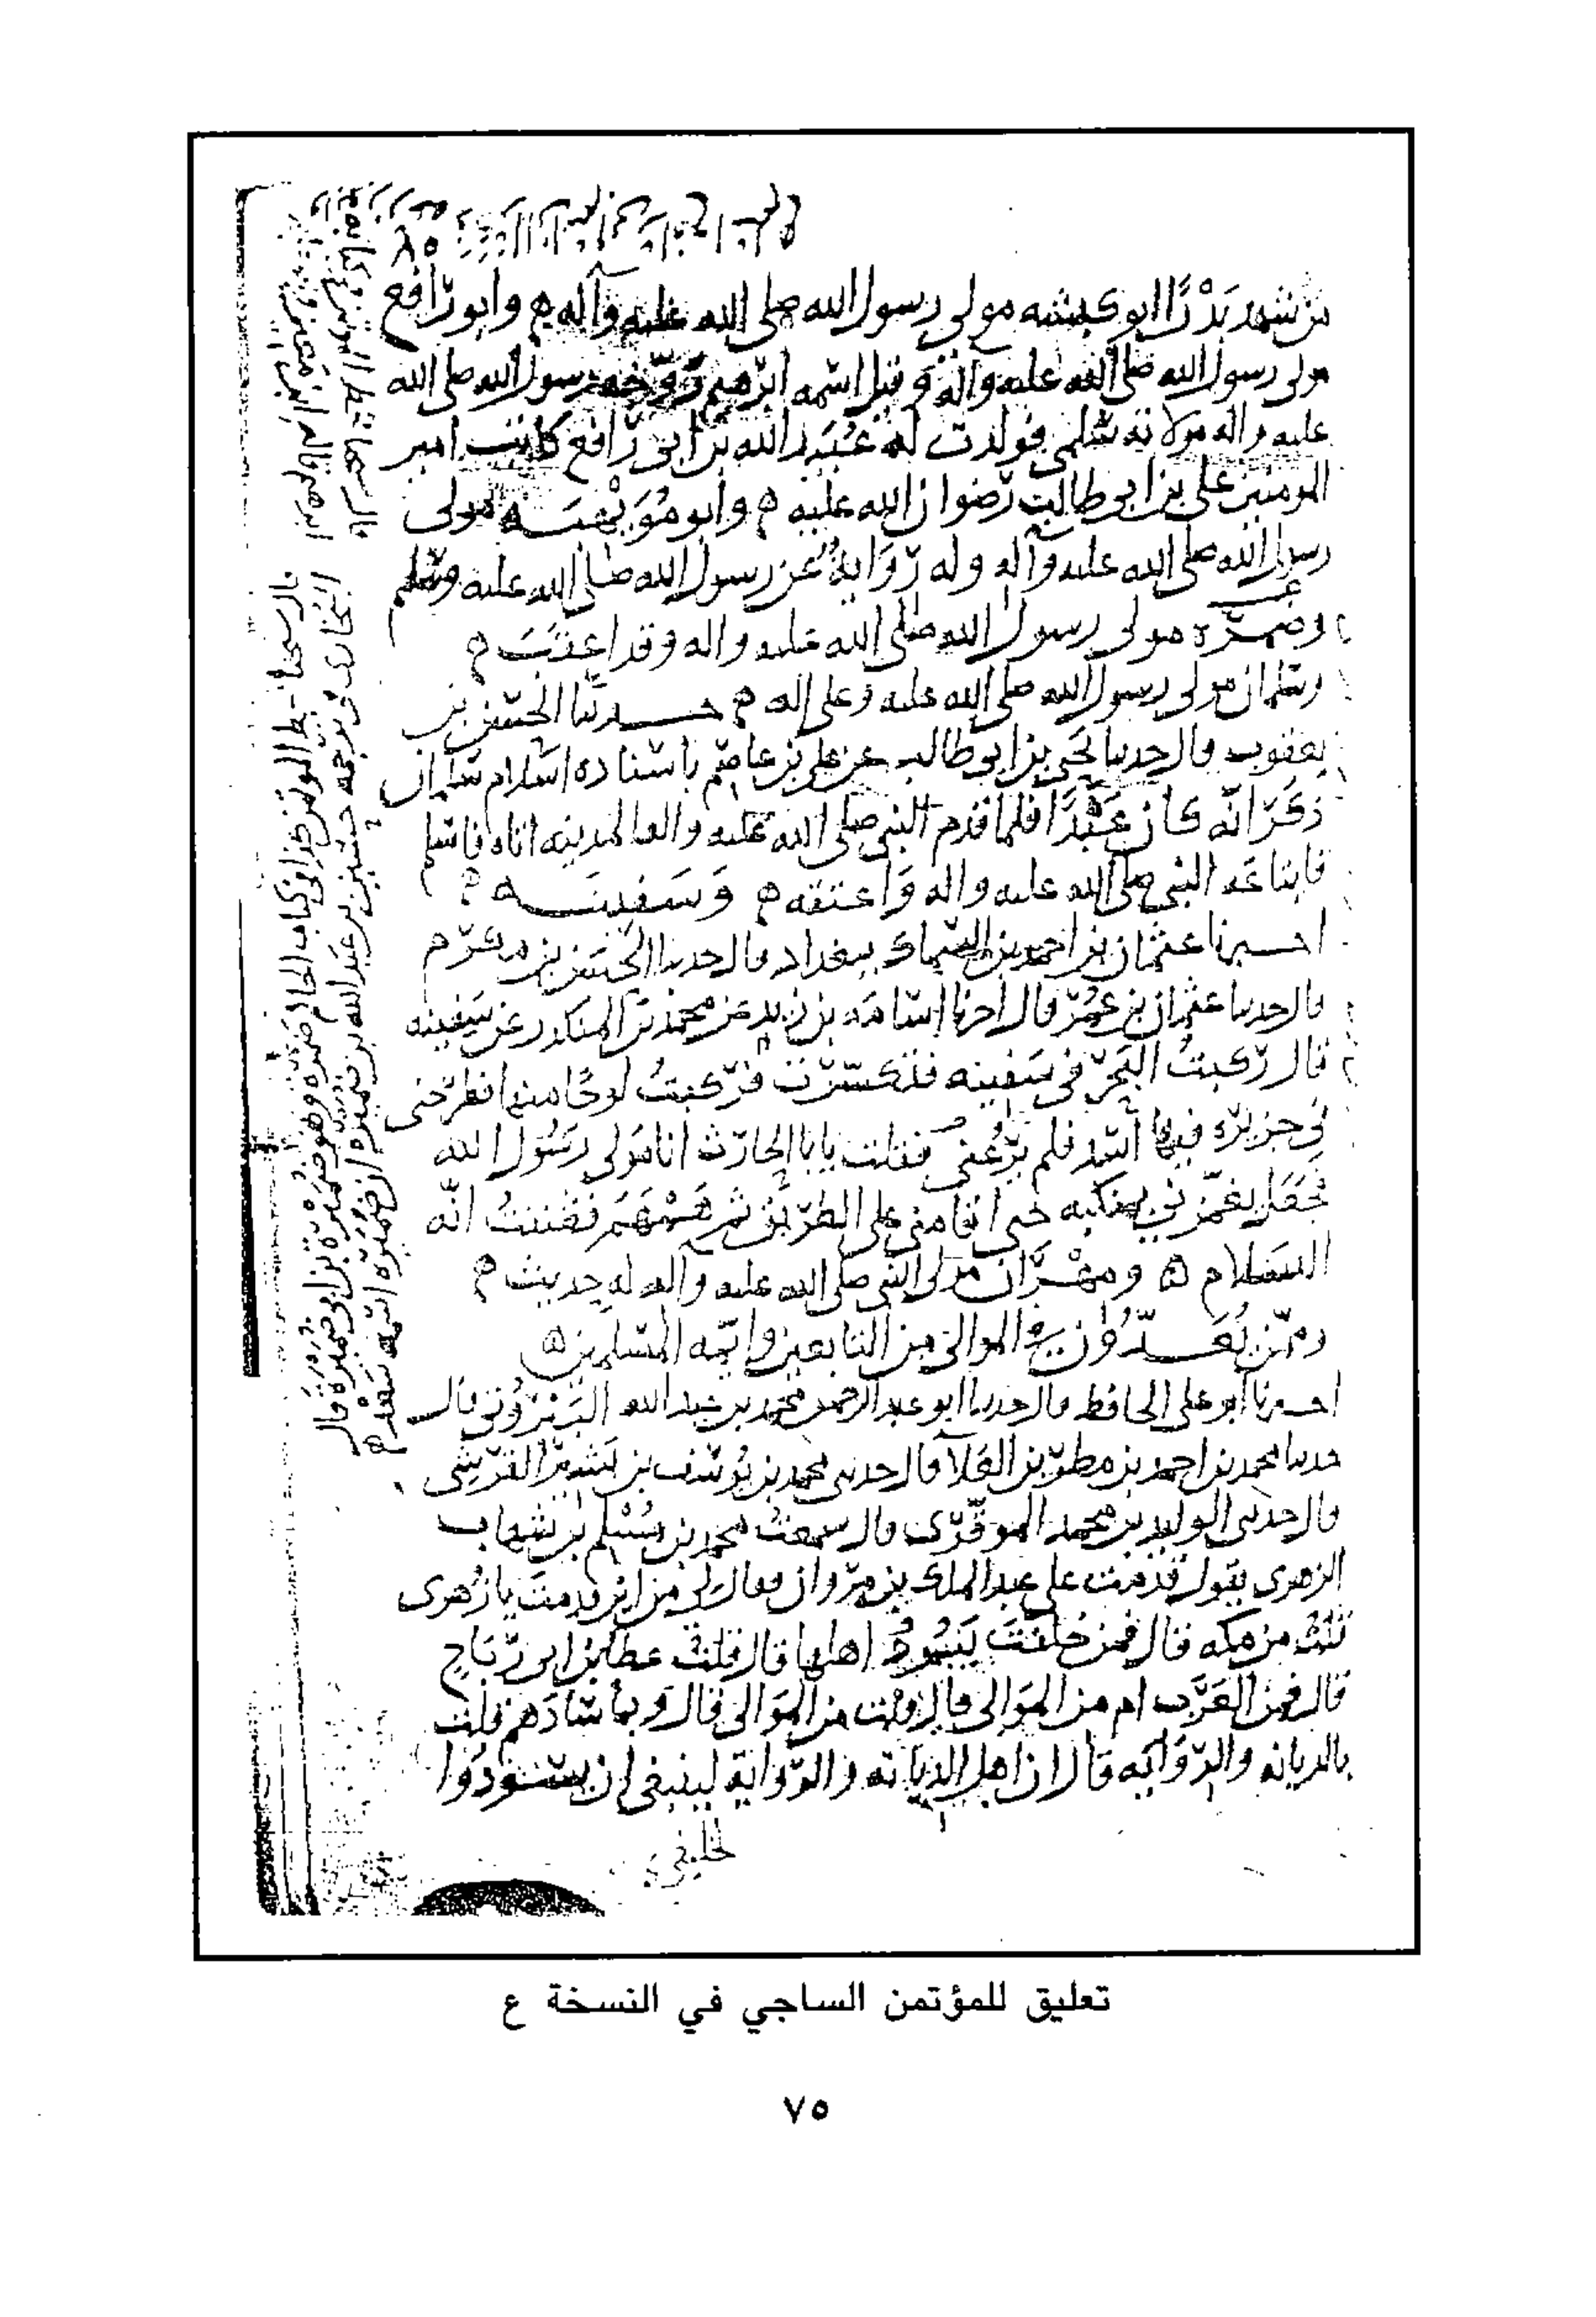 من شهد بدرا ابو كبشه مولى رسول الله صلى الله عليه وآله وابو رافع
مولى رسول الله صلى الله عليه وآله وقيل اسمه ابرهيم زوجه رسول الله صلى الله
عليه واله مولاته سلمى فولدت له عبيد الله بن ابى رافع كاتب امير
المومنين على بن ابى طالب رضوان الله عليه وابو مويهبه مولى
رسول الله صلى الله عليه وآله وله رواية عن رسول الله صلى الله عليه وسلم
وضميره مولى رسول الله صلى الله عليه واله وقد اعتقت
وسلمان مولى رسول الله صلى الله عليه وعلى اله حدثنا الحسن بن
يعقوب قال حدثنا يحيى بن ابى طالب عن على بن عاصم باسناده اسلام سلمان
ذكر انه كان عبدا فلما قدم النبى صلى الله عليه واله المدينه اتاه فاسلم
فابتاعه النبى صلى الله عليه واله واعتقه وسفينه
اخبرنا عثمان بن احمد بن السماك ببغداد قال حدثنا الحسن بن مكرم
قال حدثنا عثمان بن عمر قال اخبرنا اسامه بن زيد عن محمد بن المنكدر عن سفينه
قال ركبت البحر فى سفينه فتكسرت فركبت لوحا منها فطرحنى
فى جزيره فيها اسد فلم يرعنى فقلت يابا الحارث انا مولى رسول الله
فجعل يغمزنى بمنكبه حتى اقامنى على الطريق ثم همهم فظننت انه
السلام ومهران مولى النبى صلى الله عليه وآله له حديث
وممن يعدون فى الموالى من التابعين وايمه المسلمين
اخبرنا ابو على الحافظ قال حدثنا ابو عبد الرحمن محمد بن عبد الله البيروتى قال
حدثنا محمد بن احمد بن مطر بن العلا قال حدثنى محمد بن يوسف بن بشير القرشى
قال حدثنى الوليد بن محمد الموقرى قال سمعت محمد بن مسلم بن شهاب
الزهرى يقول قدمت على عبد الملك بن مروان فقال لى من اين قدمت يا زهرى
قلت من مكه قال فمن خلفت يسود اهلها قال قلت عطا بن ابى رباح
قال فمن العرب ام من الموالى قال قلت من الموالى قال وبما سادهم قلت
بالديانه والروايه قال ان اهل الديانه والرواية لينبغى ان يسودوا
قال سمحنا بخط المؤتمن هذا فى كتاب الحاكم ضميره وهو ضميرة بن ابى ضميره قال
البخارى فى ترجمه حسين بن عبد الله بن ضميره ان ضميره اسمه سعد
تعليق للمؤتمن الساجي في النسخة ع
٧٥